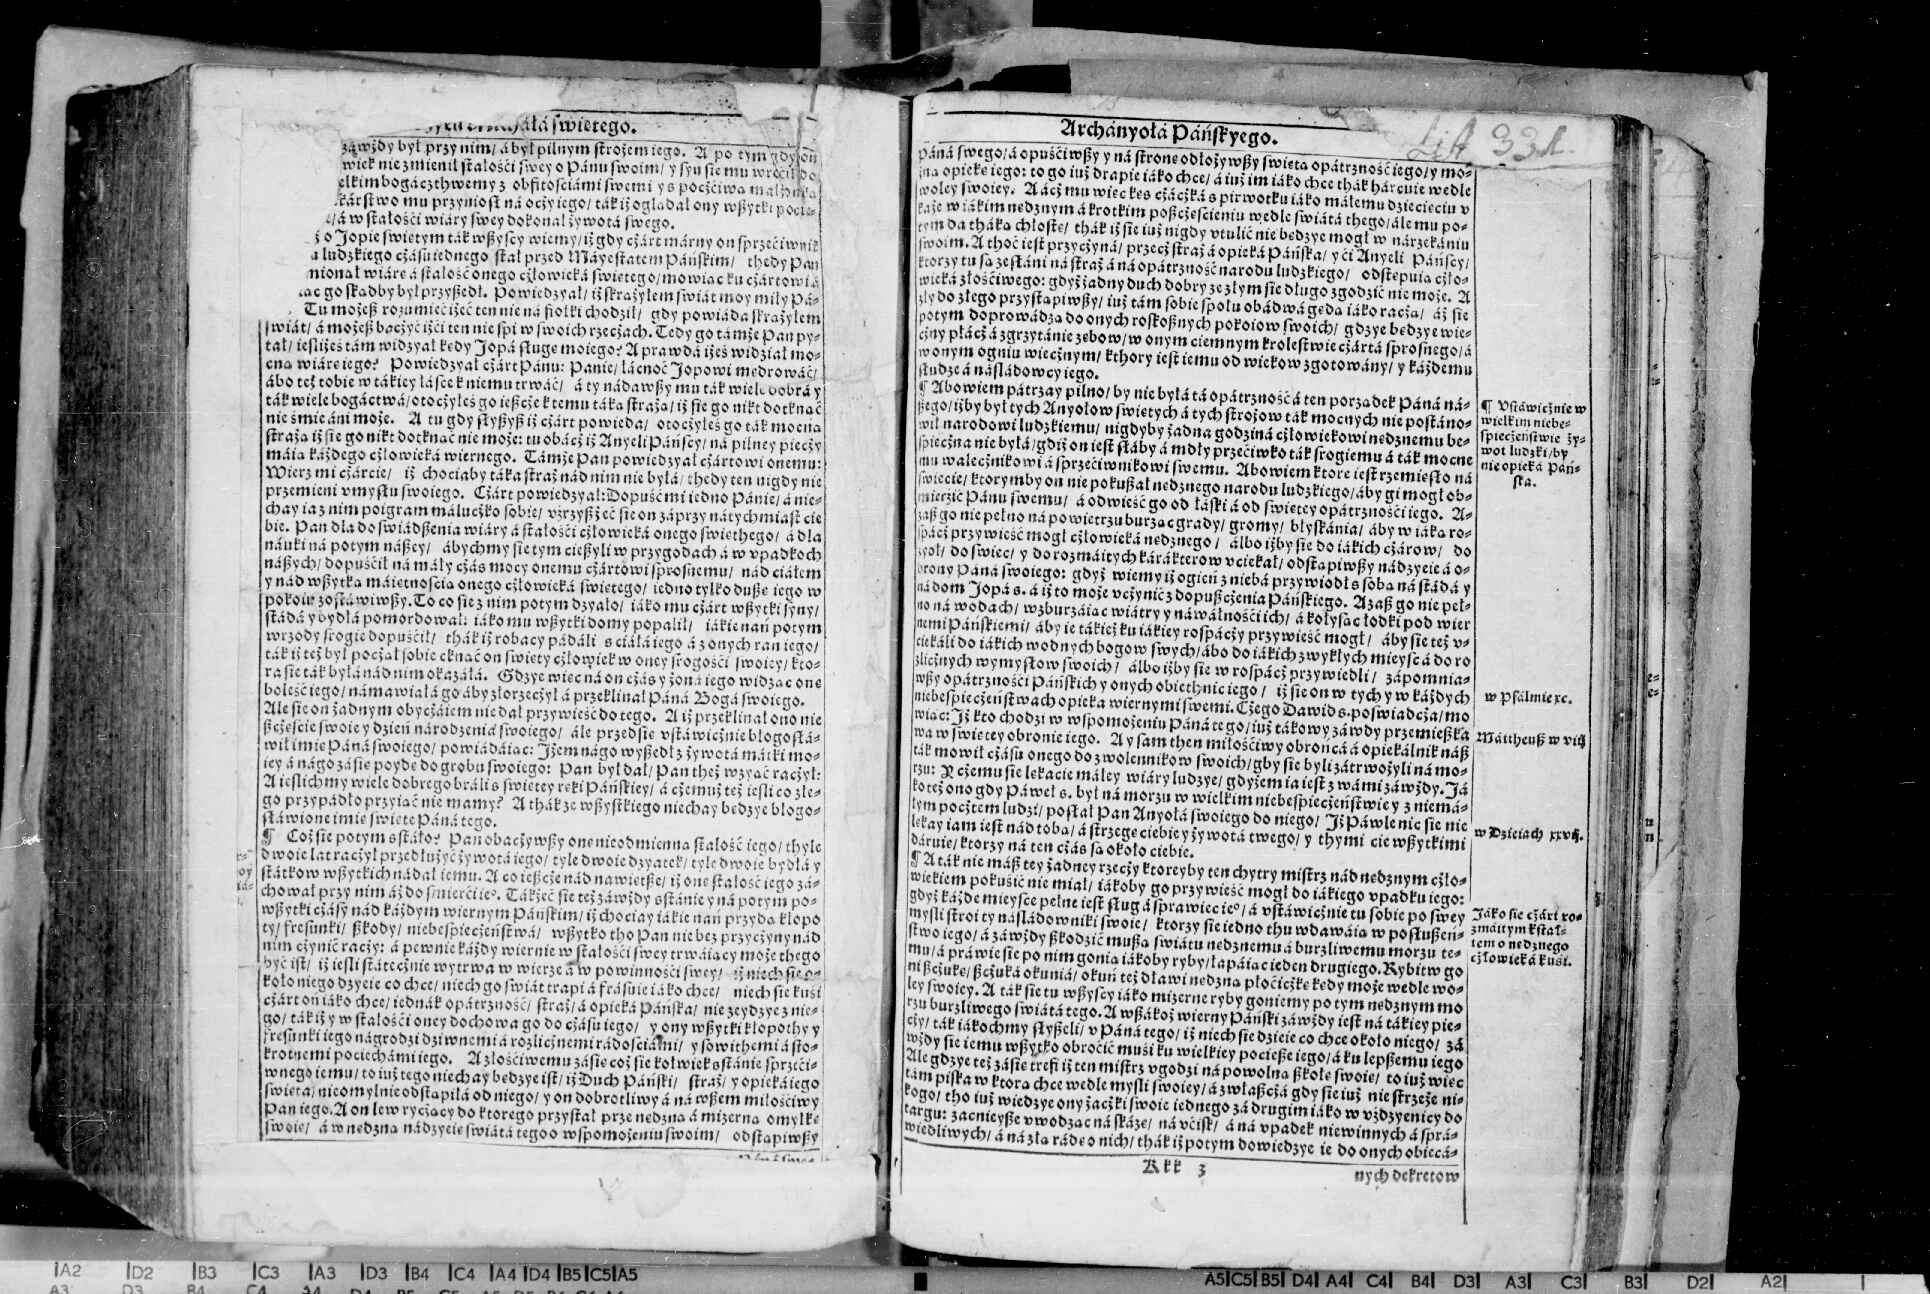 áłá świętego.
záwżdy był przy nim/ á był pilnym strożem iego. A po tym gdy on
wiek nie zmienił stáłośći swey o Pánu swoim/ y syn sie mu wroćił do
elkim bogáczthwem y z obfitośćiámi swemi y s poczćiwą małżonką
kárstwo mu przyniosł ná oczy iego/ ták iż oglądał ony wßytki pocie-
/á w stáłośći wiáry swey dokonał żywotá swego.
o Jopie świętym ták wßyscy wiemy/ iż gdy czárt márny on sprzećiwnik
á ludzkiego czásu iednego stał przed Máyestatem Páńskim/ thedy Pan
mionał wiárę á stáłość onego człowieká świętego/ mowiąc ku czártowi á
iąc go skądby był przyßedł. Powiedzyał/ iż skrążyłem świát moy miły Pá-
Tu możeß rozumieć iżeć ten nie ná fiołki chodził/ gdy powiáda skrążyłem
świát/ á możeß baczyć iżći ten nie śpi w swoich rzeczách. Tedy go támże Pan py-
tał/ ieśliżeś tám widzyał kędy Jopá sługę moiego? A prawdá iżeś widział mo-
cną wiárę iego? Powiedzyał czárt Pánu: Pánie/ łácnoć Jopowi mędrowáć/
ábo też tobie w tákiey łásce k niemu trwáć/ á ty nádawßy mu ták wiele dobrá y
ták wiele bogáctwá/ otoczyłeś go ießcze k temu táką strażą/ iż się go nikt dotknąć
nie śmie áni może. A tu gdy słyßyß iż czárt powiedá/ otoczyłeś go ták mocną
strażą iż się go nikt dotknąć nie może: tu obacz iż Anyeli Páńscy/ ná pilney pieczy
máią káżdego człowieká wiernego. Támże Pan powiedzyał czártowi onemu:
Wierz mi czárcie/ iż choćiaby táka straż nád nim nie byłá/ thedy ten nigdy nie
przemieni vmysłu swoiego. Czárt powiedzyał: Dopuść mi iedno Pánie/ á nie-
chay ia z nim poigram máluczko sobie/ vźrzyß żeć się on záprzy nátychmiast cie
bie. Pan dla doświádßenia wiáry á stáłośći człowieká onego świethego/ á dla
náuki ná potym náßey/ ábychmy się tym cießyli w przygodach á w vpadkoch
náßych/ dopuśćił ná máły czás mocy onemu czártowi sprosnemu/ nád ciáłem
y nád wßytką máiętnośćią onego człowieká świętego/ iedno tylko dußę iego w
pokoiu zostáwiwßy. To co się z nim potym dzyało/ iáko mu czárt wßytki syny/
stádá y bydłá pomordował: iáko mu wßytki domy popalił/ iákie nań potym
wrzody srogie dopuśćił/ thák iż robacy pádáli s ciáłá iego á z onych ran iego/
ták iż też był począł sobie cknąć on święty człowiek w oney srogośći swoiey/ kto-
ra się ták byłá nád nim okazáłá. Gdzye więc ná on czás y żoná iego widząc onę
boleść iego/ námawiáłá go áby złorzeczył á przeklinał Páná Bogá swoiego.
Ale się on żadnym obyczáiem nie dał przywieść do tego. A iż przeklinał ono nie
ßczęśćie swoie y dzień národzenia swoiego/ ále przedsię vstáwicznie błogosłá-
wił imię Páná swoiego/ powiádáiąc: Iżem nágo wyßedł z żywotá mátki mo-
iey á nágo zásię poydę do grobu swoiego: Pan był dał/ Pan theż wzyąć raczył:
A ieślichmy wiele dobrego bráli s świętey ręki Páńskiey/ á czemuż też ieśli co złe-
go przypádło przyiąć nie mamy? A thák ze wßystkiego niechay będzye błogo-
słáwione imię święte Páná tego.
¶ Coż się potym sstáło? Pan obaczywßy onę nieodmienną stáłość iego/ thyle
dwoie lat raczył przedłużyć żywotá iego/ tyle dwoie dzyatek/ tyle dwoie bydłá y
státkow wßytkich nádał iemu. A co ießcze nád nawiętße/ iż onę stáłość iego zá-
chował przy nim áż do śmierći ieº. Tákżeć się też záwżdy sstánie y ná potym po-
wßytki czásy nád káżdym wiernym Páńskim/ iż choćiay iákie nań przydą kłopo
ty/ fresunki/ ßkody/ niebespieczeństwá/ wßytko tho Pan nie bez przyczyny nád
nim czynić raczy: á pewnie káżdy wiernie w stáłośći swey trwáiący może thego
być ist/ iż ieśli státecznie wytrwa w wierze á w powinnośći swey/ iż niech się o-
koło niego dzyeie co chce/ niech go świát trapi á frásuie iáko chce/ niech się kuśi
czárt oń iáko chce/ iednák opátrzność/ straż/ á opieká Páńska/ nie zeydzye z nie-
go/ ták iż y w stáłośći oney dochowa go do czásu iego/ y ony wßytki kłopothy y
fresunki iego nágrodzi dziwnemi á rozlicznemi rádośćiámi/ y sowithemi á sto-
krotnemi pociechámi iego. A złośćiwemu zásię coż się kolwiek sstánie sprzeći-
wnego iemu/ to iuż tego niechay będzye ist/ iż Duch Páński/ straż/ y opieká iego
święta/ nieomylnie odstąpiłá od niego/ y on dobrotliwy á ná wßem miłośćiwy
Pan iego. A on lew ryczący do ktorego przystał prze nędzną á mizerną omyłkę
swoię/ á w nędzną nádzyeię świátá tego o wspomożeniu swoim/ odstąpiwßy
Archányołá Páńskyego.
List 331.
Páná swego/ á opuśćiwßy y ná stronę odłożywßy świętą opátrzność iego/ y mo-
żną opiekę iego: to go iuż drapie iáko chce/ á iuż im iáko chce thák hárcuie wedle
woley swoiey. A ácz mu więc kęs czáczká s pirwotku iáko máłemu dziecięciu v
każe w iákim nędznym á krotkim poßczęśćieniu wedle świátá thego/ ále mu po-
tym da tháką chłostę/ thák iż się iuż nigdy vtulić nie będzye mogł w nárzekániu
swoim. A thoć iest przyczyná/ przecż straż á opieká Páńska/ y ći Anyeli Páńscy/
ktorzy tu są zesłáni ná straż á ná opátrzność narodu ludzkiego/ odstępuią czło-
wieká złośćiwego: gdyż żadny duch dobry ze złym się długo zgodzić nie może. A
zły do złego przystąpiwßy/ iuż tám sobie społu obádwá gędą iáko raczą/ áż się
potym doprowádzą do onych roskoßnych pokoiow swoich/ gdzye będzye wie-
czny płácz á zgrzytánie zębow/ w onym ciemnym krolestwie czártá sprosnego/ á
w onym ogniu wiecznym/ kthory iest iemu od wiekow zgotowány/ y káżdemu
słudze á násládowcy iego.
¶ Abowiem pátrzay pilno/ by nie byłá tá opátrzność á ten porządek Páná ná-
ßego/ iżby był tych Anyołow świętych á tych strożow ták mocnych nie postáno-
wił narodowi ludzkiemu/ nigdyby żadna godziná człowiekowi nędznemu be-
śpieczna nie byłá/ gdiż on iest słáby á mdły przećiwko ták srogiemu á ták mocne
mu walecznikowi á sprzećiwnikowi swemu. Abowiem ktore iest rzemięsło ná
świecie/ ktorymby on nie pokußał nędznego narodu ludzkiego/ áby gi mogł ob-
mierzić Pánu swemu/ á odwieść go od łáski á od świętey opátrznośći iego. A-
zaß go nie pełno ná powietrzu burząc grády/ gromy/ błyskánia/ áby w iáką ro-
spácz przywieść mogł człowieká nędznego/ álbo iżby się do iákich czárow/ do
zyoł/ do świec/ y do rozmáitych kárákterow vciekał/ odstąpiwßy nádzyeie á o-
brony Páná swoiego: gdyż wiemy iż ogień z niebá przywiodł s sobą ná stádá y
ná dom Jopá s. á iż to może vczynić z dopußczenia Páńskiego. Azaß go nie peł-
no ná wodach/ wzburzáiąc wiátry y náwáłnośći ich/ á kołysáć łodki pod wier
nemi Páńskiemi/ áby ie tákież ku iákiey rospáczy przywieść mogł/ áby się też v-
ciekáli do iákich wodnych bogow swych/ ábo do iákich zwykłych mieysc á do ro
zlicznych wymysłow swoich/ álbo iżby się w rospácz przywiedli/ zápomnia-
wßy opátrznośći Páńskich y onych obiethnic iego/ iż się on w tych y w káżdych
niebespieczeństwach opieka wiernymi swemi. Czego Dawid s. poświadcza/ mo
wiąc: Iż kto chodzi w wspomożeniu Páná tego/ iuż tákowy záwdy przemießka
wa w świętey obronie iego. A y sam then miłośćiwy obrońcá á opiekálnik náß
ták mowił czásu onego do zwolennikow swoich/ gby się byli zátrwożyli ná mo-
rzu: Y czemu się lękacie máłey wiáry ludzye/ gdyżem ia iest z wámi záwżdy. Já
ko też ono gdy Páweł s. był ná morzu w wielkim niebespieczeństwie y z niemá-
łym pocztem ludzi/ posłał Pan Anyołá swoiego do niego/ Iż Páwle nic się nie
lękay iam iest nád tobą/ á strzegę ciebie y żywotá twego/ y thymi cię wßytkimi
dáruię/ ktorzy ná ten czás są około ciebie.
¶ A ták nie máß tey żadney rzeczy ktoreyby ten chytry mistrz nád nędznym czło-
wiekiem pokuśić nie miał/ iákoby go przywieść mogł do iákiego vpadku iego:
gdyż káżde mieysce pełne iest sług á sprawiec ieº/ á vstáwicznie tu sobie po swey
myśli stroi ty násládowniki swoie/ ktorzy się iedno thu wdawáią w posłußeń-
stwo iego/ á záwżdy ßkodzić mußą świátu nędznemu á burzliwemu morzu te-
mu/ á práwie się po nim gonią iákoby ryby/ łápáiąc ieden drugiego. Rybitw go
ni ßczukę/ ßczuká okuniá/ okuń też dławi nędzną płociczkę kędy może wedle wo-
ley swoiey. A ták się tu wßyscy iáko mizerne ryby goniemy po tym nędznym mo
rzu burzliwego świátá tego. A wßákoż wierny Páński záwżdy iest ná tákiey pie-
czy/ ták iákochmy słyßeli/ v Páná tego/ iż niech się dzieie co chce około niego/ zá
wżdy się iemu wßytko obroćić muśi ku wielkiey pocieße iego/ á ku lepßemu iego
Ale gdzye też zásię trefi iż ten mistrz vgodzi ná powolną ßkołę swoię/ to iuż więc
tám piska w ktorą chce wedle myśli swoiey/ á zwłaßczá gdy się iuż nie strzeże ni-
kogo/ tho iuż wiedzye ony żaczki swoie iednego zá drugim iáko w vżdzyenicy do
targu: zacnieyße vwodząc ná skázę/ ná vćisk/ á ná vpadek niewinnych á sprá-
wiedliwych/ á ná złą rádę o nich/ thák iż potym dowiedzye ie do onych obiecá-
Kkk 3
nych dekretow
¶ Vstáwicznie w
wielkim niebe-
śpieczeństwie ży-
wot ludzki/ by
nie opieká Páń-
ska.
w Psálmie xc.
Máttheuß w viij
w Dzieiach xxvij.
Jáko się czárt ro-
zmáitym kstał-
tem o nędznego
człowieká kuśi.